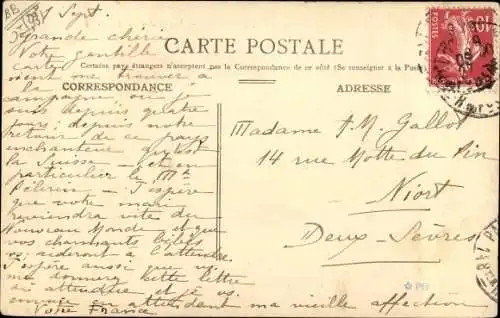 BB
1 Sept.
Grande chérie
Votre gentille
carte
vient me trouver à
la
campagne où je
suis depuis quatre
jours; depuis notre
retour de ce pays
enchanteur qu'est
la Suisse et en
particulier le Mt
Pélerin. J'espère
que votre mari
reviendra vite du
Nouveau Monde et que
vos charmants bébés
vous aideront à l'attendre.
J'espère aussi que
me donnerez cette lettre
où attendue et je vs
envoie en attendant ma vieille affection
Votre France
CARTE POSTALE
Certains pays étrangers n'acceptent pas la Correspondance de ce côté (Se renseigner à la Poste)
CORRESPONDANCE
ADRESSE
Madame A. M. Gallot
14 rue Motte du Pin
Niort
Deux-Sèvres
POSTES
10
PB